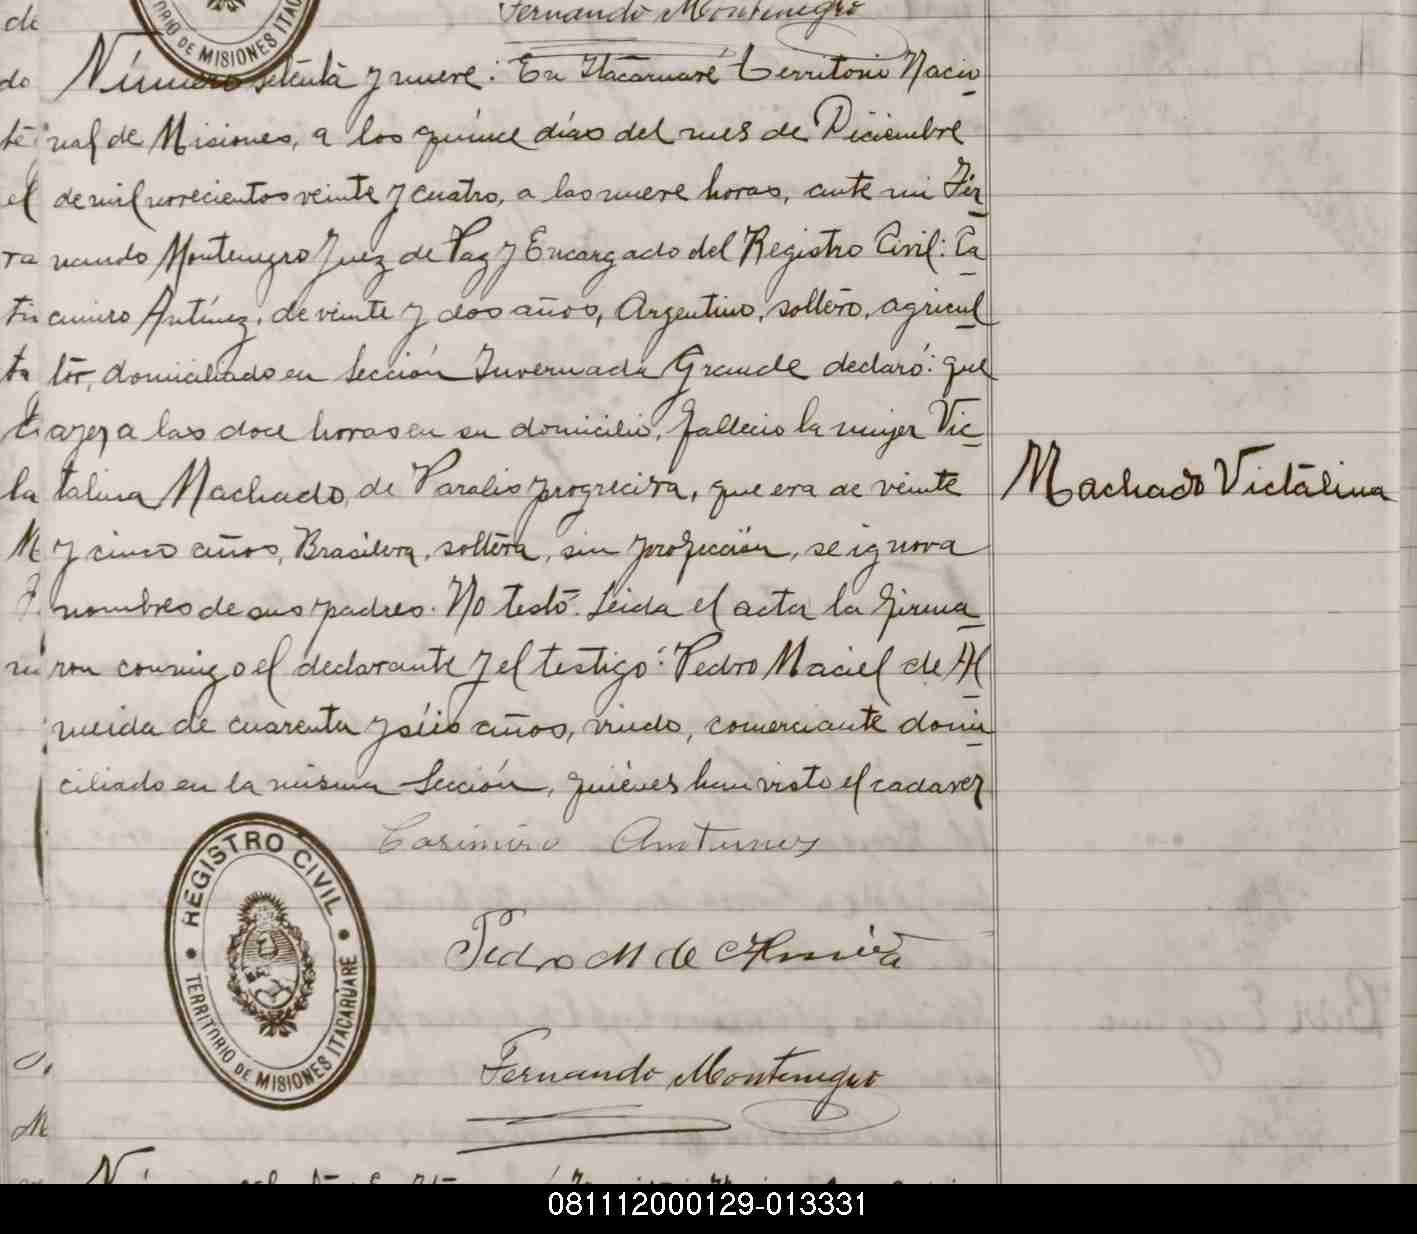 de
Fernando Montenegro
RIO DE MISIONES ITACA
do
Número setenta y nueve: En Itacaruaré Territorio Nacio
te
nal de Misiones, a los quince días del mes de Diciembre
el
de mil novecientos veinte y cuatro, a las nueve horas, ante mi Fer
ra
nando Montenegro Juez de Paz y Encargado del Registro Civil: Ca
cimiro Antúnez, de veinte y dos años, Argentino, soltero, agricul
ta
tor, domiciliado en Sección Invernada Grande declaró: que
ayer a las doce horas en su domicilio, fallecio la mujer Vic
la
talina Machado, de Paralis progreciva, que era de veinte
Machado Victalina
M
y cinco años, Brasilera, soltera, sin profección, se ignora
nombres de sus padres. No testó. Leida el acta la firma
ron conmigo el declarante y el testigo: Pedro Maciel de Al
meida de cuarenta y séis años, viudo, comerciante domi
ciliado en la misma Sección, quiénes han visto el cadaver
Casimiro Antunes
REGISTRO CIVIL
TERRITORIO DE MISIONES ITACARUARE
Pedro M de Almeida
Fernando Montenegro
M
081112000129-013331